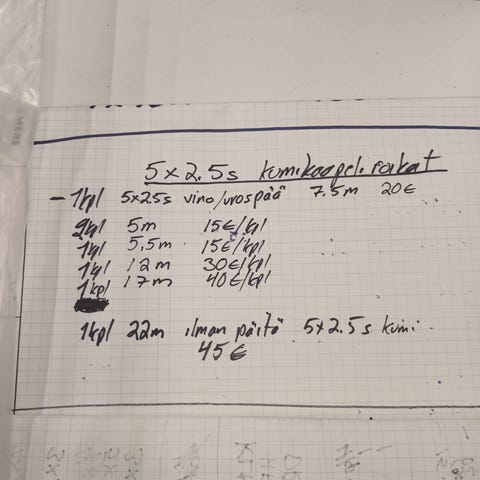 5x2.5s kumikaapeli roikat
- 1kpl 5x2.5s vino/urospää 7.5m 20€
2kpl 5m 15€/kpl
1kpl 5,5m 15€/kpl
1kpl 12m 30€/kpl
1kpl 17m 40€/kpl
1kpl 22m ilman päitä 5x2.5s kumi
45€